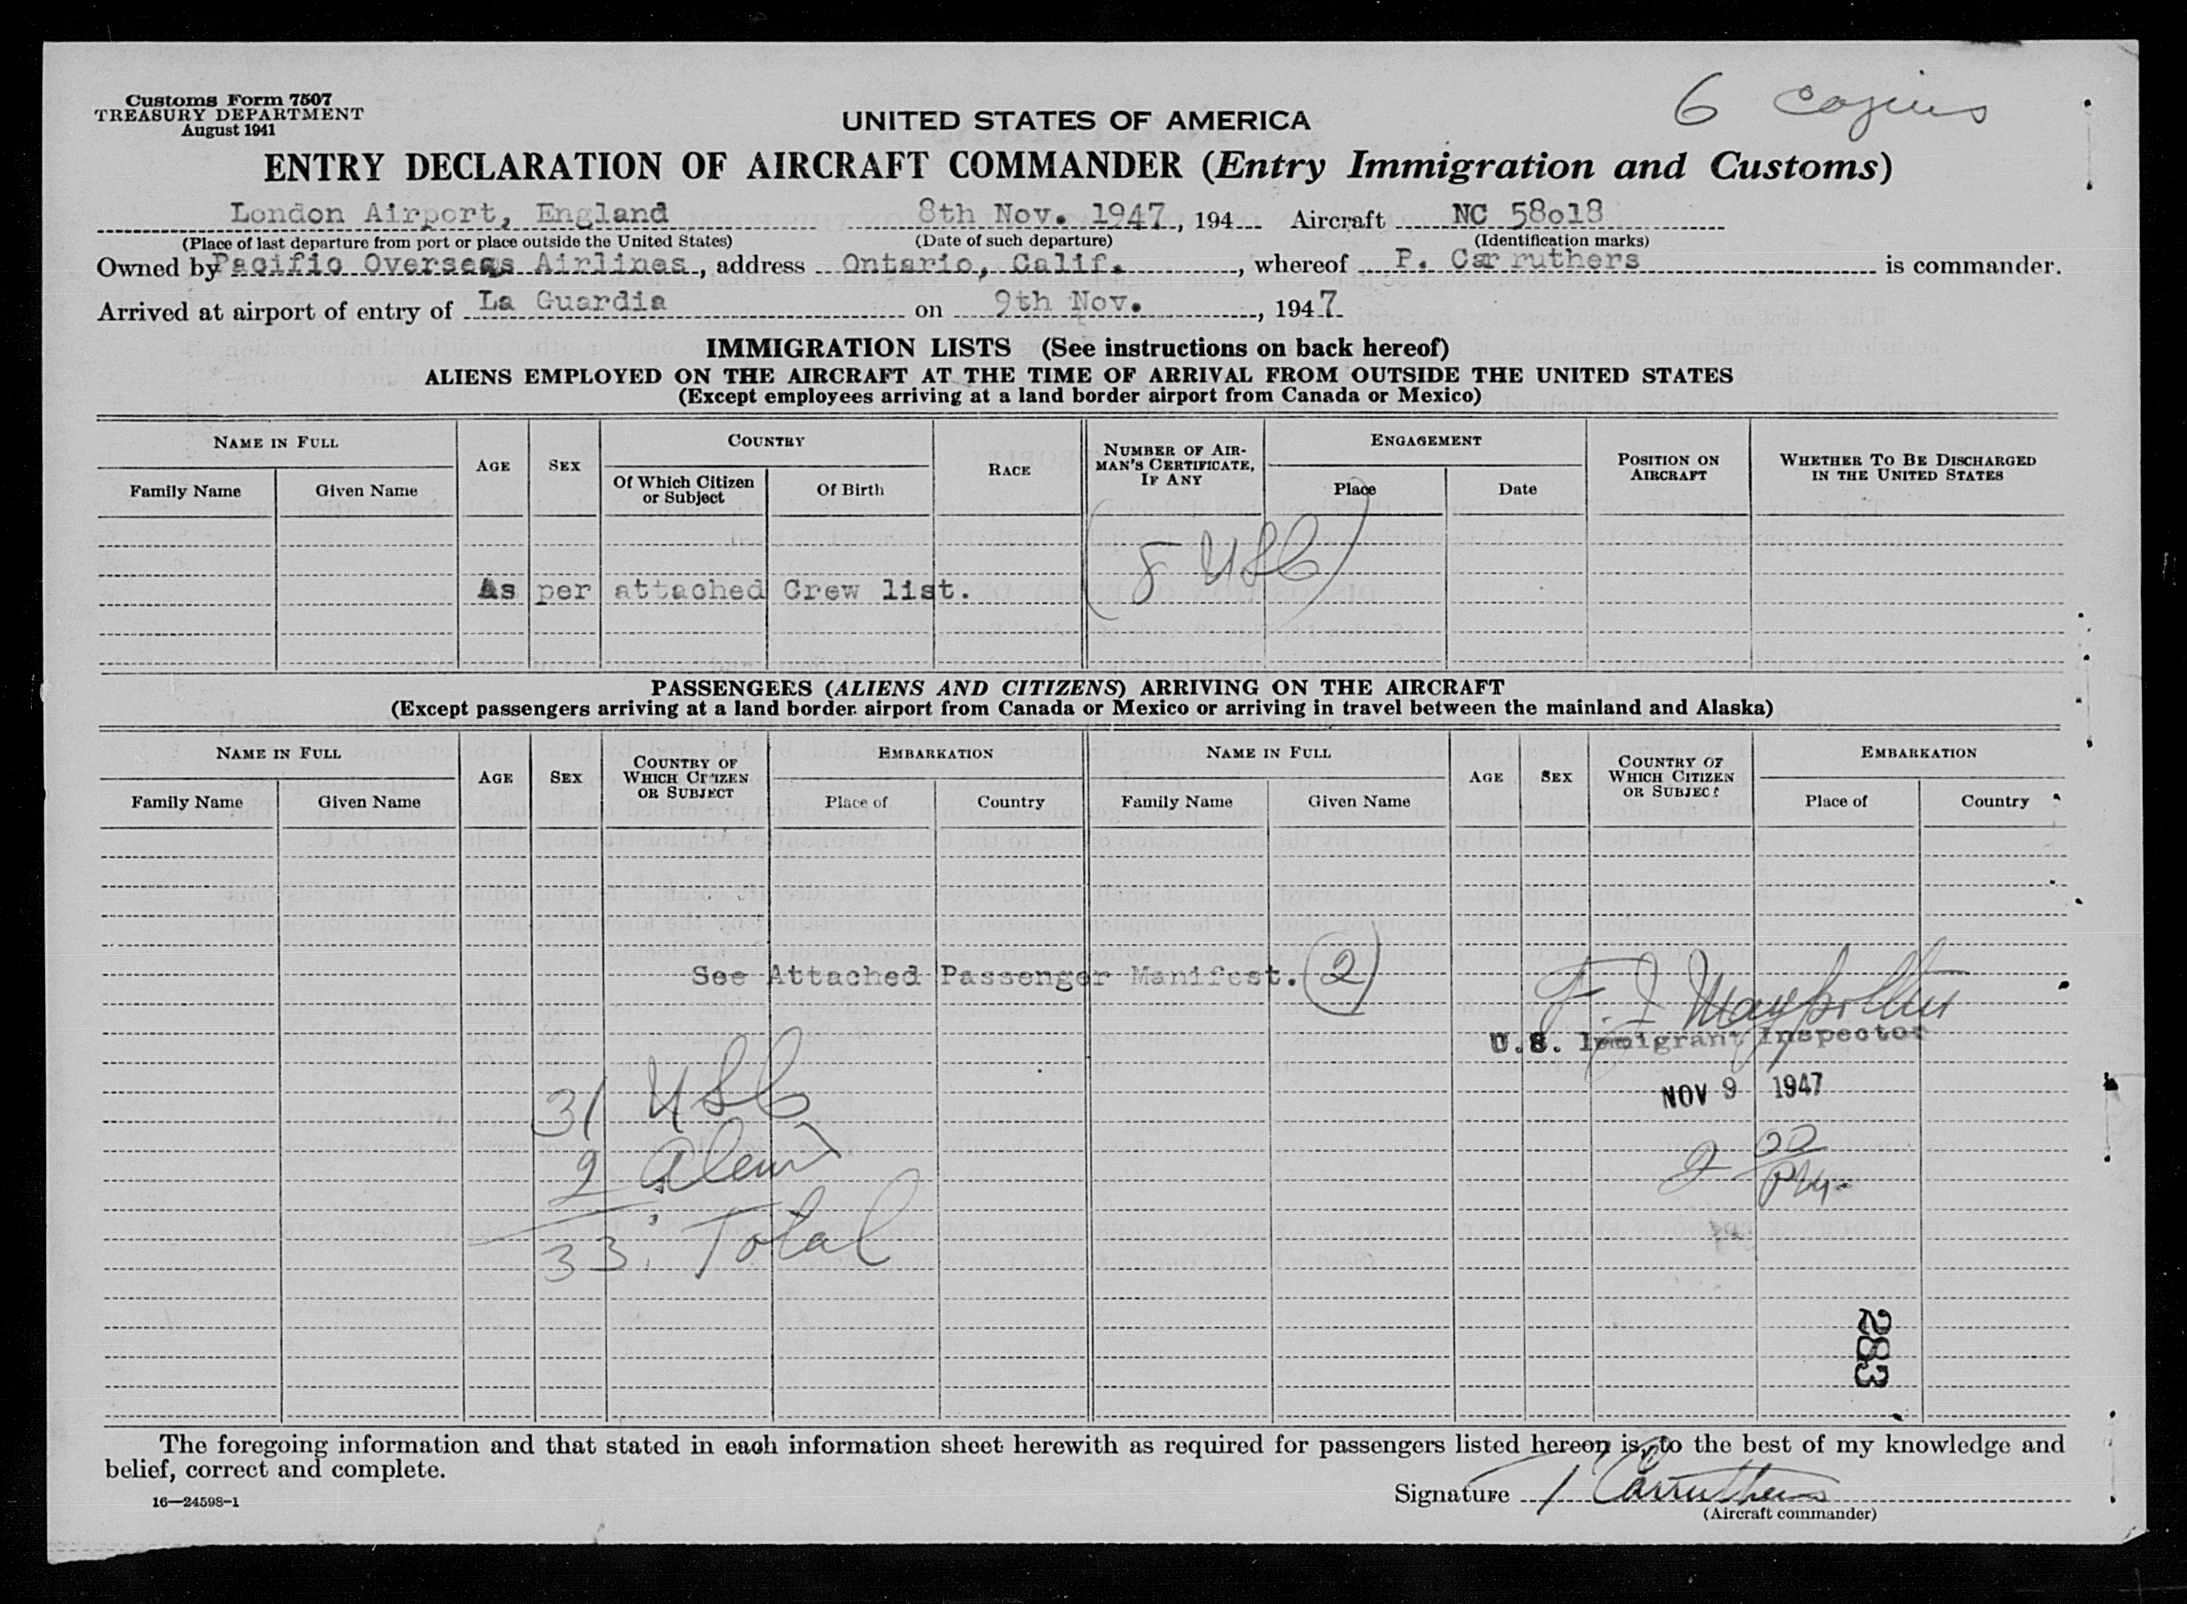 Customs Form 7507
TREASURY DEPARTMENT
August 1941
6 copies
UNITED STATES OF AMERICA
ENTRY DECLARATION OF AIRCRAFT COMMANDER (Entry Immigration and Customs)
London Airport, England 8th Nov. 1947, 194 Aircraft NC 58018
(Place of last departure from port or place outside the United States) (Date of such departure) (Identification marks)
Owned by Pacific Overseas Airlines, address Ontario, Calif., whereof P. Carruthers is commander.
Arrived at airport of entry of La Guardia on 9th Nov., 1947
IMMIGRATION LISTS (See instructions on back hereof)
ALIENS EMPLOYED ON THE AIRCRAFT AT THE TIME OF ARRIVAL FROM OUTSIDE THE UNITED STATES
(Except employees arriving at a land border airport from Canada or Mexico)
NAME IN FULL AGE SEX COUNTRY RACE NUMBER OF AIRMAN'S CERTIFICATE, IF ANY ENGAGEMENT POSITION ON AIRCRAFT WHETHER TO BE DISCHARGED IN THE UNITED STATES
Family Name Given Name Of Which Citizen or Subject Of Birth Place Date
(8 USC)
As per attached Crew list.
PASSENGERS (ALIENS AND CITIZENS) ARRIVING ON THE AIRCRAFT
(Except passengers arriving at a land border airport from Canada or Mexico or arriving in travel between the mainland and Alaska)
NAME IN FULL AGE SEX COUNTRY OF WHICH CITIZEN OR SUBJECT EMBARKATION NAME IN FULL AGE SEX COUNTRY OF WHICH CITIZEN OR SUBJECT EMBARKATION
Family Name Given Name Place of Country Family Name Given Name Place of Country
See Attached Passenger Manifest. (2)
F. J.
U.S. Immigrant Inspector
31 USC
NOV 9 1947
2 Aliens
2
33 Total
283
The foregoing information and that stated in each information sheet herewith as required for passengers listed hereon is, to the best of my knowledge and
belief, correct and complete.
Signature P Carruthers
16—24598-1
(Aircraft commander)